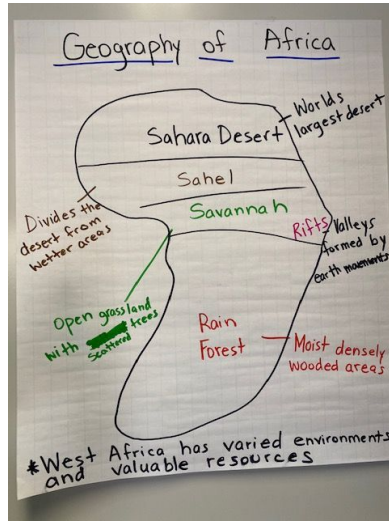 Geography of Africa
Sahara Desert
Worlds
largest desert
Sahel
Divides the
desert from
wetter areas
Savannah
Rifts Valleys
formed by
earth movements
Open grassland
with scattered trees
Rain
Forest
Moist densely
wooded areas
*West Africa has varied environments
and valuable resources